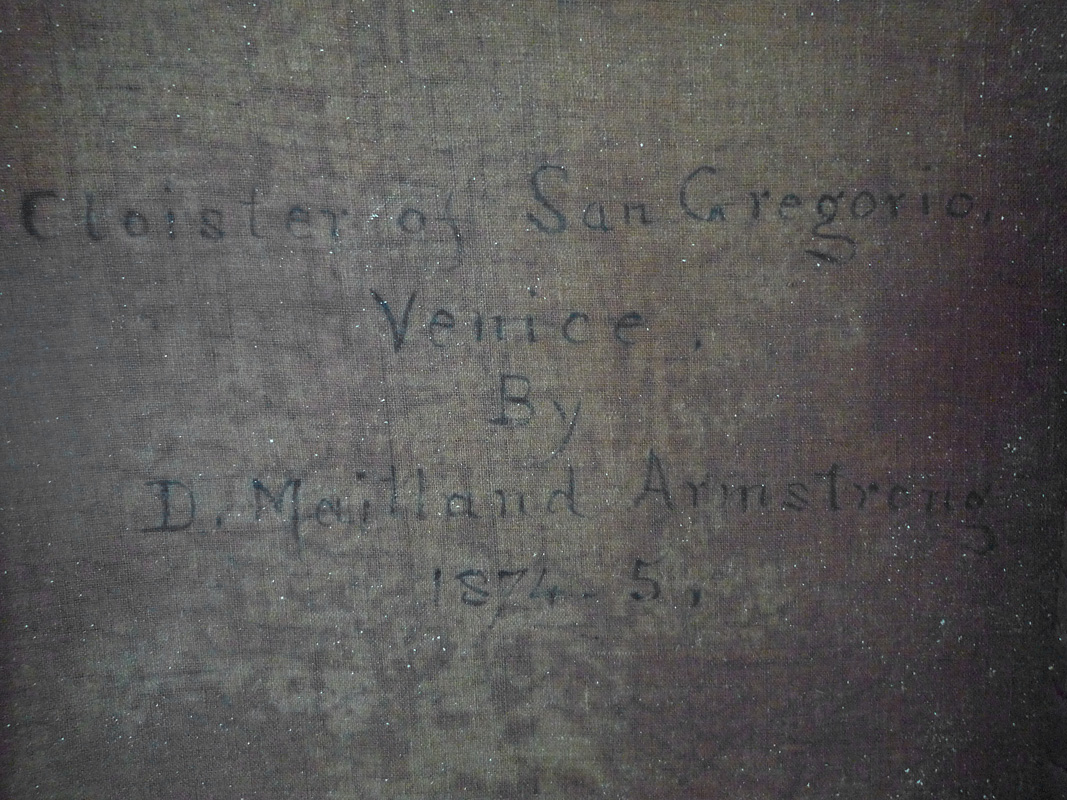 Cloister of San Gregorio.
Venice.
By
D. Maitland Armstrong
1874-5.